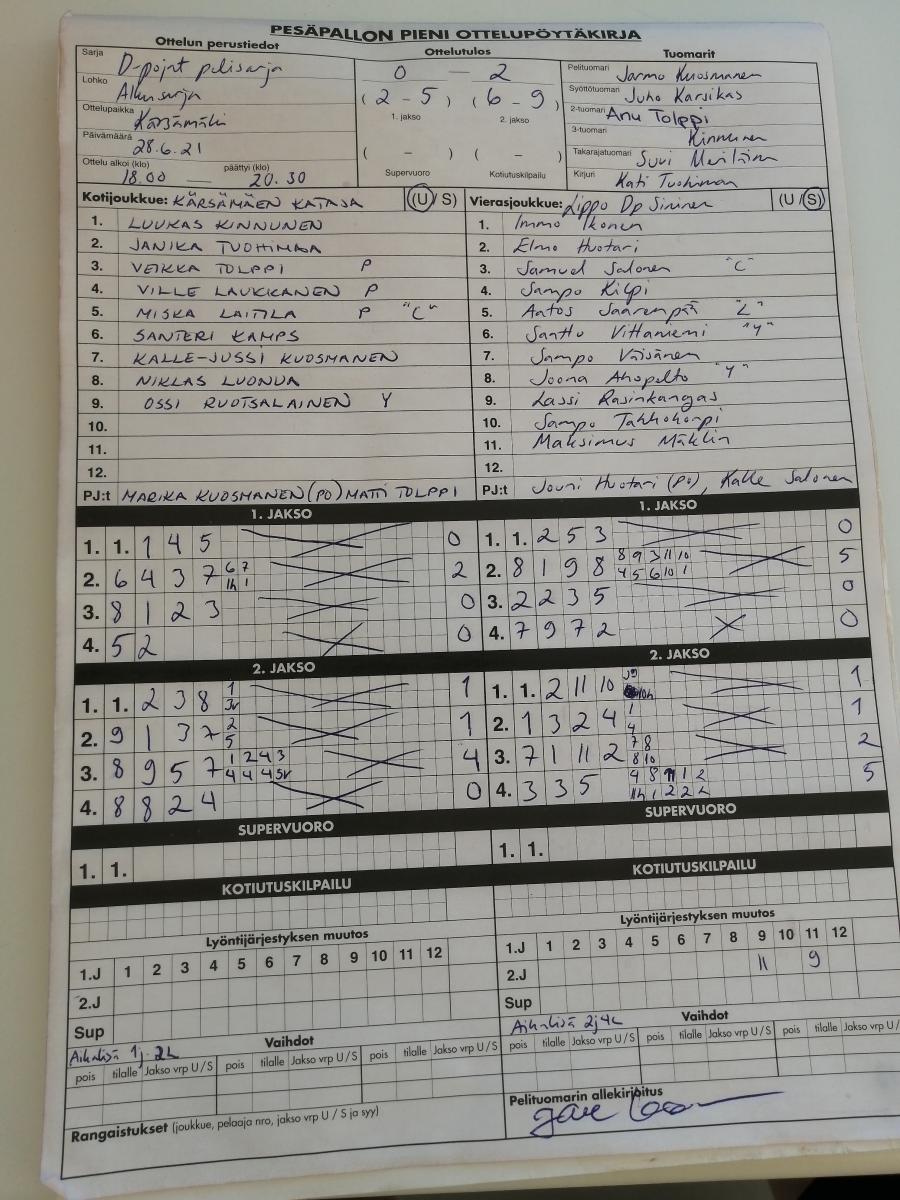 PESÄPALLON PIENI OTTELUPÖYTÄKIRJA
Ottelun perustiedot
Ottelutulos
Tuomarit
Sarja D-pojat pelisarja
Lohko Alkusarja
Ottelupaikka Kärsämäki
Päivämäärä 28.6.21
Ottelu alkoi (klo) päättyi (klo)
18.00 — 20.30
0 — 2
( 2 - 5 ) ( 6 - 9 )
1. jakso 2. jakso
( - ) ( - )
Supervuoro Kotiutuskilpailu
Pelituomari Jarmo Kuosmanen
Syöttötuomari Juho Karsikas
2-tuomari Anu Tolppi
3-tuomari Kinnunen
Takarajatuomari Suvi
Kirjuri Kati
Kotijoukkue: KÄRSÄMÄEN KATAJA (U / S)
1. LUUKAS KINNUNEN
2. JANIKA TUOHIMAA
3. VEIKKA TOLPPI P
4. VILLE LAUKKANEN P
5. MISKA LAITILA P "C"
6. SANTERI KAMPS
7. KALLE-JUSSI KUOSMANEN
8. NIKLAS LUONUA
9. OSSI RUOTSALAINEN Y
10.
11.
12.
PJ:t MARIKA KUOSMANEN (PO) MATTI TOLPPI
Vierasjoukkue: Lippo Dp Sininen (U / S)
1. Immo Ikonen
2. Elmo Huotari
3. Samuel Salonen "C"
4. Sampo Kilpi
5. Aatos Saarenpää "L"
6. Santtu Vittaniemi "Y"
7. Sampo Väisänen
8. Joona Ahopelto "Y"
9. Lassi Rasinkangas
10. Sampo Takkokorpi
11. Maksimus Mäklin
12.
PJ:t Jouni Huotari (PO), Kalle Salonen
1. JAKSO
1. 1. 1 4 5 0
2. 6 4 3 7 6 7 2
1h 1
3. 8 1 2 3 0
4. 5 2 0
2. JAKSO
1. 1. 2 3 8 1 1
3v
2. 9 1 3 7 2 1
5
3. 8 9 5 7 1 2 4 3 4
4 4 4 5v
4. 8 8 2 4 0
SUPERVUORO
1. 1.
KOTIUTUSKILPAILU
1. JAKSO
1. 1. 2 5 3 0
2. 8 1 9 8 8 9 3 11 10 5
4 5 6 10 1
3. 2 2 3 5 0
4. 7 9 7 2 0
2. JAKSO
1. 1. 2 11 10 1
10h
2. 1 3 2 4 1 1
4
3. 7 1 11 2 7 8 2
8 10
4. 3 3 5 4 8 11 1 2 5
1h 1 2 2 2
SUPERVUORO
1. 1.
KOTIUTUSKILPAILU
Lyöntijärjestyksen muutos
1.J 1 2 3 4 5 6 7 8 9 10 11 12
2.J
Sup
Aikalisä 1j 2L
Vaihdot
pois tilalle Jakso vrp U / S pois tilalle Jakso vrp U / S pois tilalle Jakso vrp U / S
Rangaistukset (joukkue, pelaaja nro, jakso vrp U / S ja syy)
Lyöntijärjestyksen muutos
1.J 1 2 3 4 5 6 7 8 9 10 11 12
2.J 11 9
Sup
Aikalisä 2j4L
Vaihdot
pois tilalle Jakso vrp U / S pois tilalle Jakso vrp U / S pois tilalle Jakso vrp U / S
Pelituomarin allekirjoitus